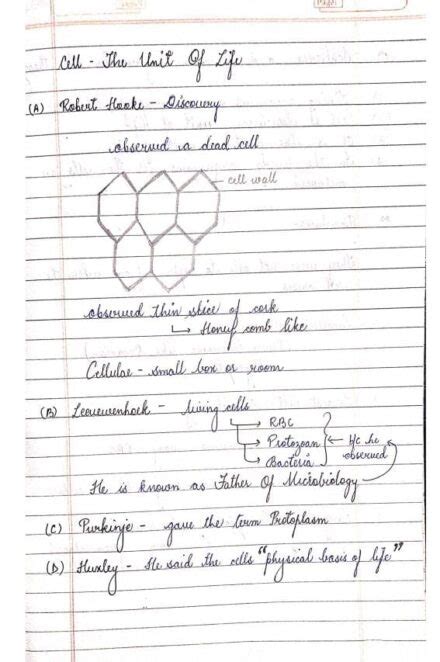 Cell - The Unit Of Life
(A) Robert Hooke - Discovery
observed a dead cell
cell wall
observed thin slice of cork
↳ Honey comb like
Cellulae - small box or room
(B) Leeuewenhoek - living cells
→ RBC
→ Protozoan ← H/c he
→ Bacteria observed
He is known as Father Of Microbiology
(C) Purkinje - gave the term Protoplasm
(D) Huxley - He said the cells "physical basis of life"